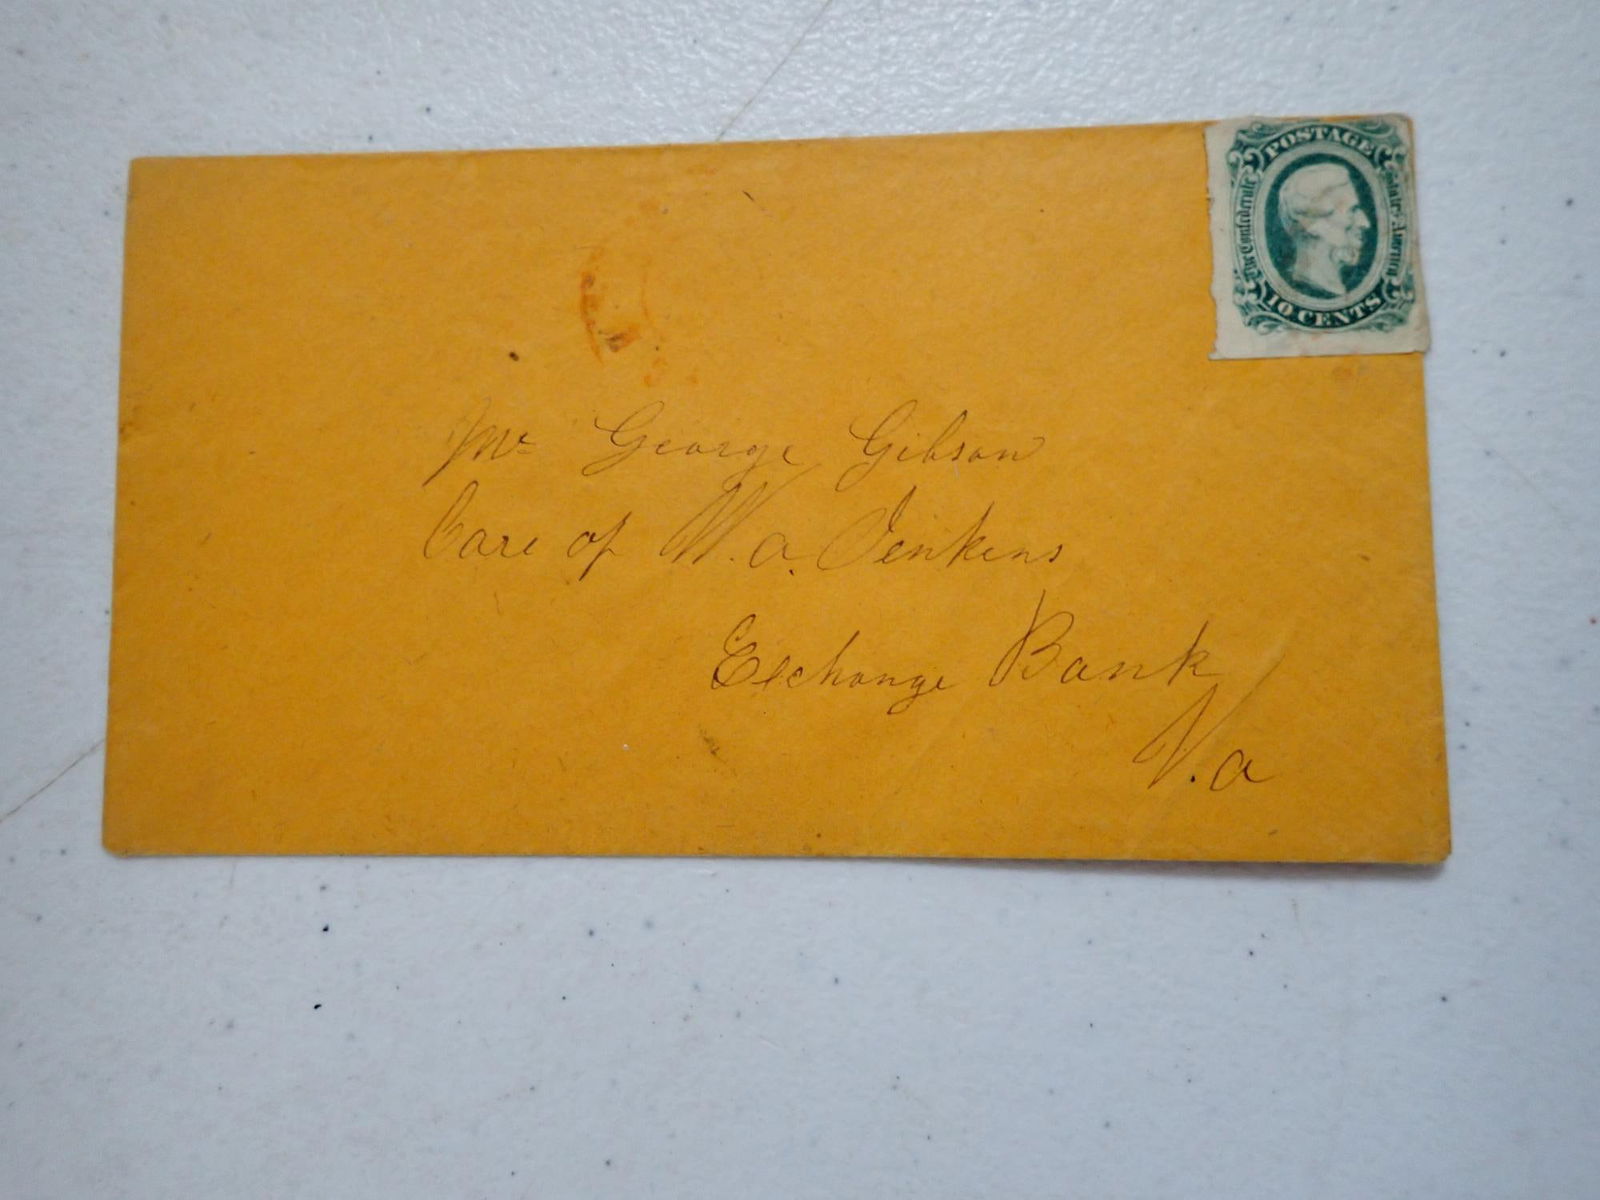 POSTAGE
The Confederate States of America
10 CENTS
Mr George Gibson
Care of W. a. Jenkens
Exchange Bank
V.a